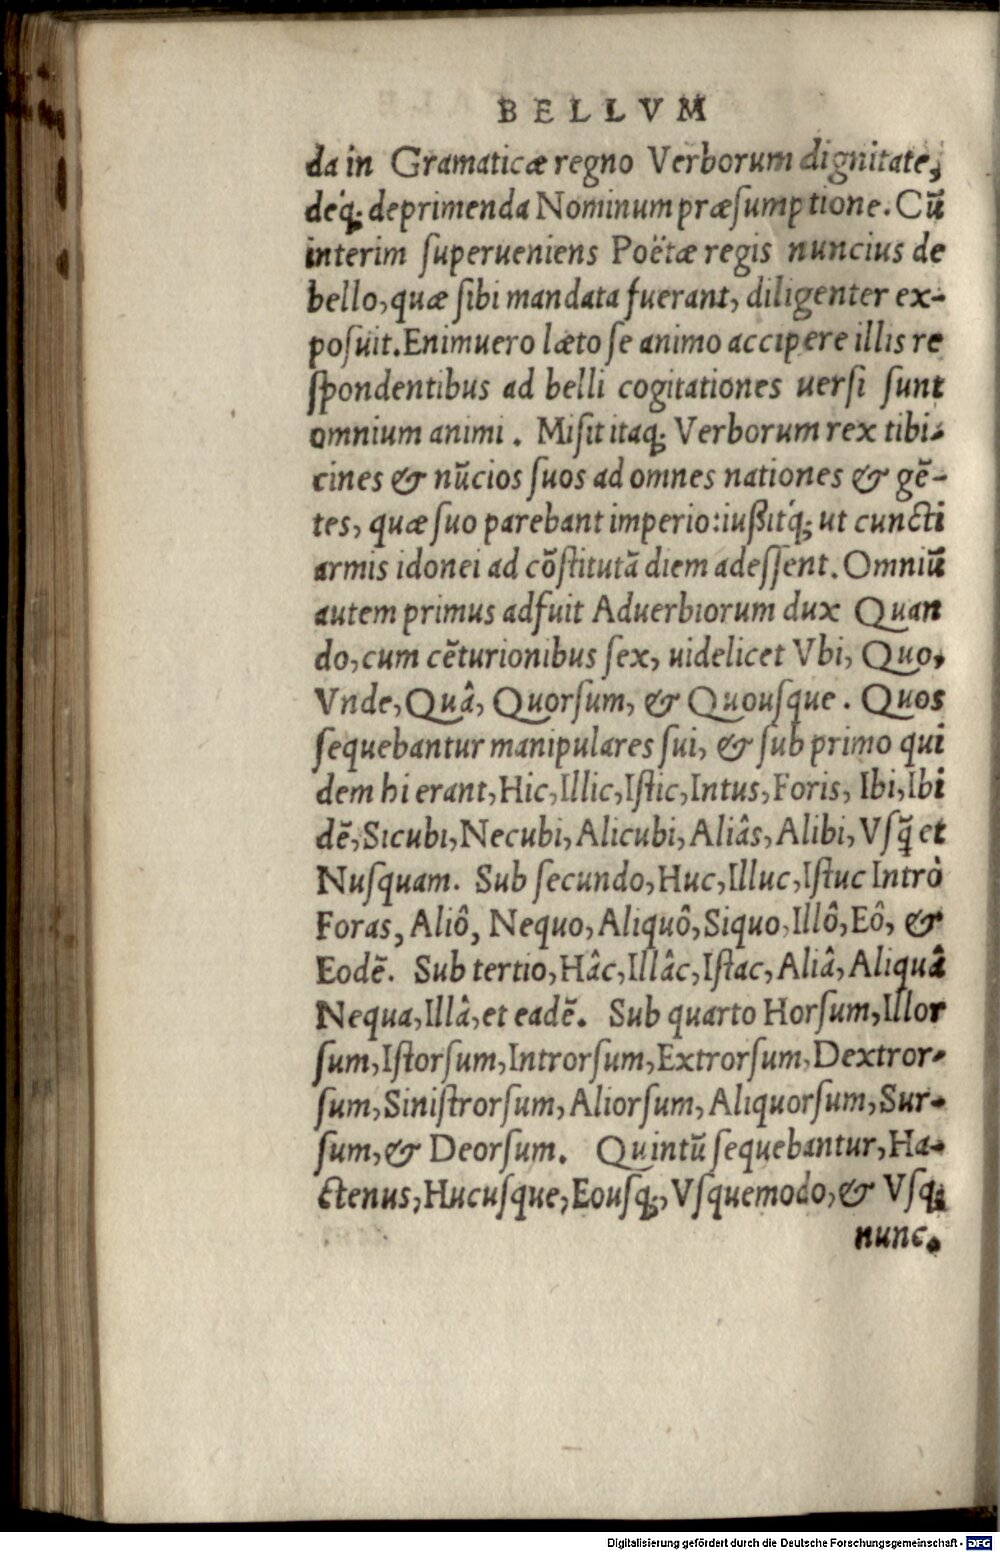 BELLVM
da in Gramaticæ regno Verborum dignitate,
déq; deprimenda Nominum præſumptione. Cũ
interim ſuperueniens Poëtæ regis nuncius de
bello, quæ ſibi mandata fuerant, diligenter ex-
poſuit. Enimuero læto ſe animo accipere illis re
ſpondentibus ad belli cogitationes uerſi ſunt
omnium animi. Miſit itaq; Verborum rex tibi-
cines & nũcios ſuos ad omnes nationes & gẽ-
tes, quæ ſuo parebant imperio: iußit'q; ut cuncti
armis idonei ad cõſtitutã diem adeſſent. Omniũ
autem primus adfuit Aduerbiorum dux Quan
do, cum cẽturionibus ſex, uidelicet Vbi, Quo,
Vnde, Quâ, Quorſum, & Quouſque. Quos
ſequebantur manipulares ſui, & ſub primo qui
dem hi erant, Hic, Illic, Iſtic, Intus, Foris, Ibi, Ibi
dẽ, Sicubi, Necubi, Alicubi, Aliâs, Alibi, Vſq̃ et
Nuſquam. Sub ſecundo, Huc, Illuc, Iſtuc Intrò
Foras, Aliô, Nequo, Aliquô, Siquo, Illô, Eô, &
Eodẽ. Sub tertio, Hâc, Illâc, Iſtac, Aliâ, Aliquâ
Nequa, Illâ, et eadẽ. Sub quarto Horſum, Illor
ſum, Iſtorſum, Introrſum, Extrorſum, Dextror-
ſum, Siniſtrorſum, Aliorſum, Aliquorſum, Sur-
ſum, & Deorſum. Quintũ ſequebantur, Ha-
ctenus, Hucuſque, Eouſq;, Vſquemodo, & Vſq;
nunc.
Digitalisierung gefördert durch die Deutsche Forschungsgemeinschaft - DFG